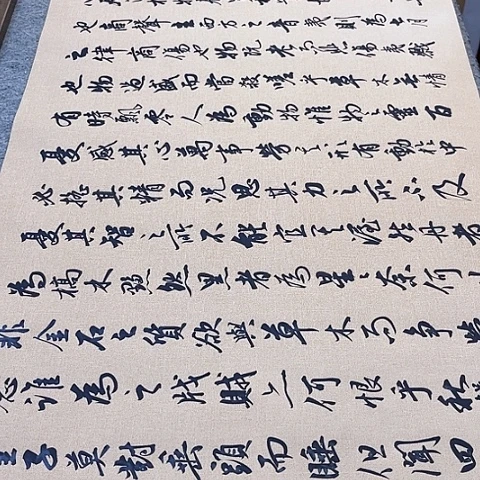 也商聲主西方之音夷則為七月
之律商傷也物既老而悲傷夷戮
也物過盛而當殺嗟乎草木無情
有時飄零人為動物惟物之靈百
憂感其心萬事勞其形有動於中
必搖其精而況思其力之所不及
憂其智之所不能宜其渥然丹者
為槁木黟然黑者為星星奈何
非金石之質欲與草木而爭榮
念誰為之戕賊亦何恨乎秋
子莫對垂頭而睡但聞四